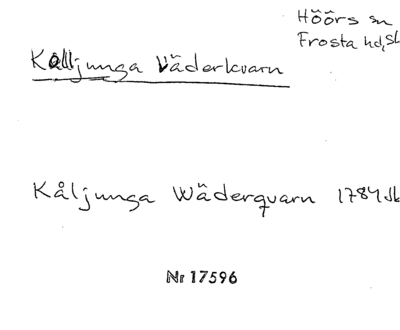 Höörs sn
Frosta hd, Sk
Kålljunga Väderkvarn
Kåljunga Wäderqvarn 1784 Jb
Nr 17596